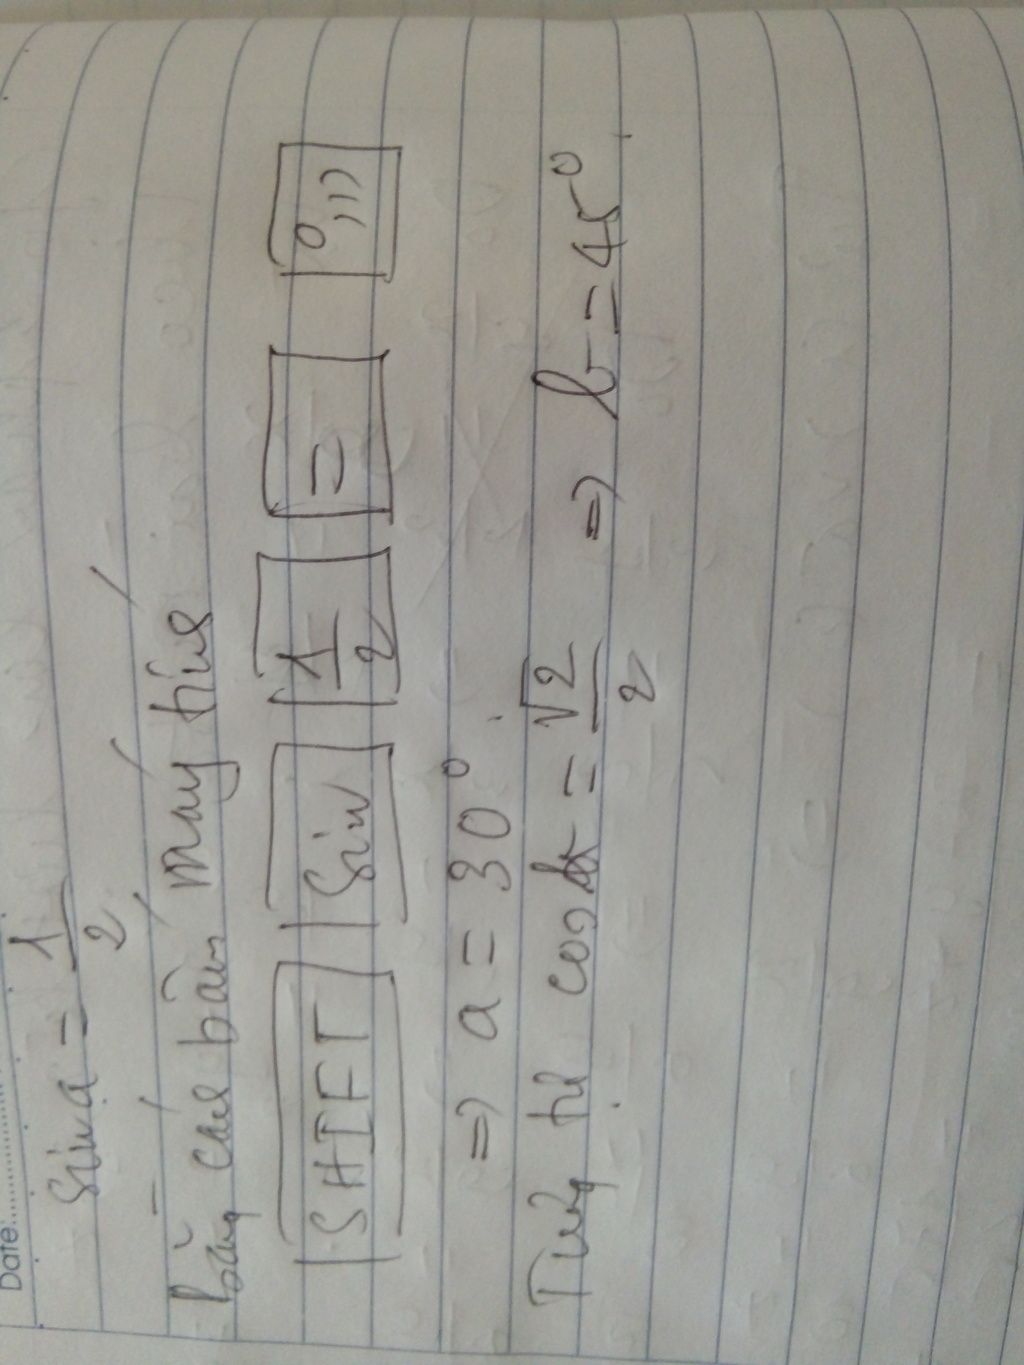 Date:
Sin a = 1/2
bằng cách bấm máy tính
SHIFT Sin 1/2 = °,,,
=> a = 30°
Tương tự cos b = √2/2 => b = 45°